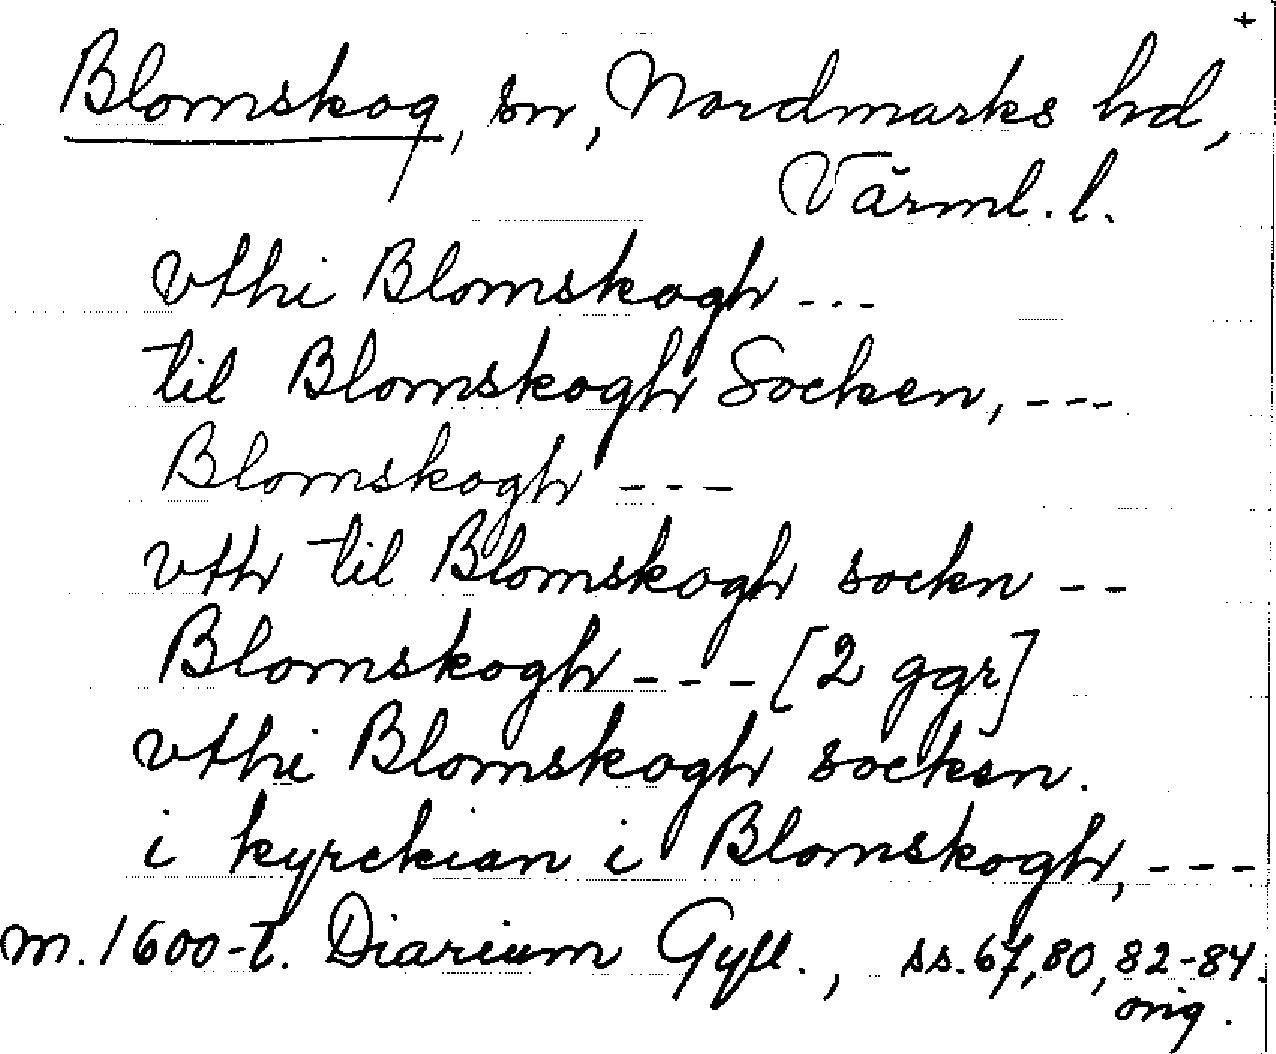 +
Blomskog, sn, Nordmarks hd,
Värml. l.
vthi Blomskogh ---
til Blomskogh Socken, ---
Blomskogh ---
vth til Blomskogh sockn --
Blomskogh --- [2 ggr]
vthi Blomskogh socken.
i kyrckian i Blomskogh, ---
m. 1600-t. Diarium Gyll., ss. 67, 80, 82-84.
orig.